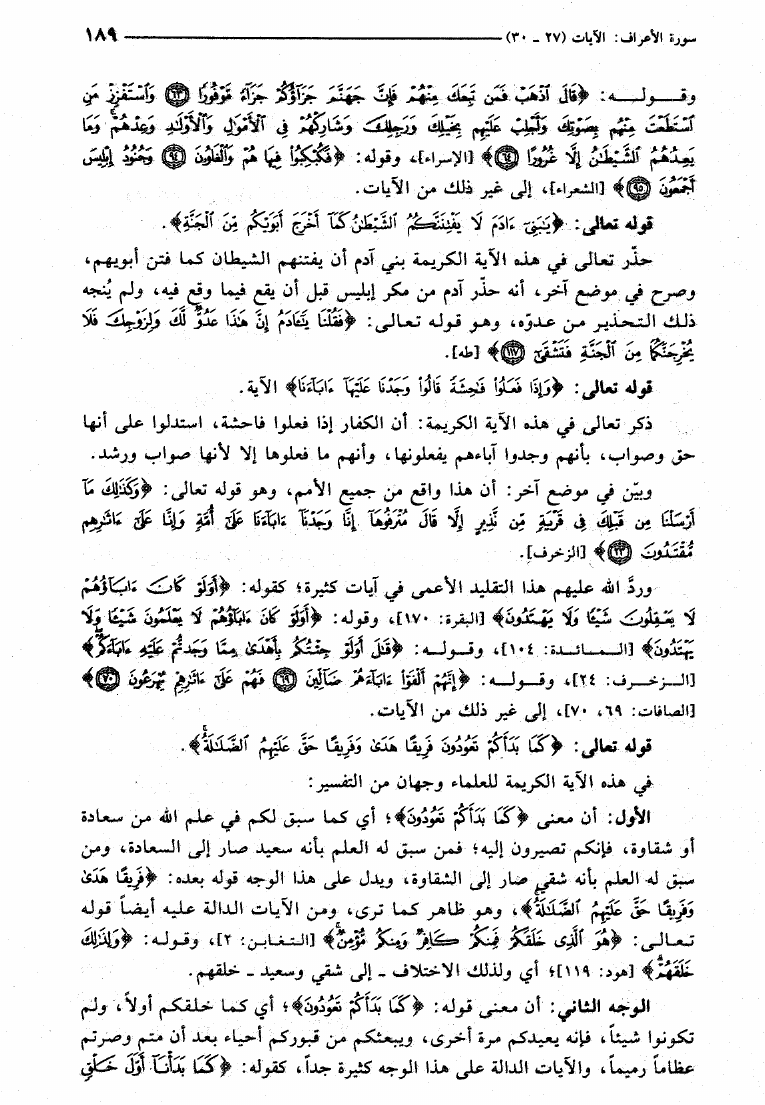 سورة الأعراف: الآيات (٢٧ ـ ٣٠) ١٨٩
وقــولــه: ﴿قَالَ ٱذْهَبْ فَمَن تَبِعَكَ مِنْهُمْ فَإِنَّ جَهَنَّمَ جَزَآؤُكُمْ جَزَآءً مَّوْفُورًا ﴿٦٣﴾ وَٱسْتَفْزِزْ مَنِ
ٱسْتَطَعْتَ مِنْهُم بِصَوْتِكَ وَأَجْلِبْ عَلَيْهِم بِخَيْلِكَ وَرَجِلِكَ وَشَارِكْهُمْ فِى ٱلْأَمْوَٰلِ وَٱلْأَوْلَٰدِ وَعِدْهُمْ وَمَا
يَعِدُهُمُ ٱلشَّيْطَٰنُ إِلَّا غُرُورًا ﴿٦٤﴾﴾ [الإسراء]، وقوله: ﴿فَكُبْكِبُوا۟ فِيهَا هُمْ وَٱلْغَاوُۥنَ ﴿٩٤﴾ وَجُنُودُ إِبْلِيسَ
أَجْمَعُونَ ﴿٩٥﴾﴾ [الشعراء]، إلى غير ذلك من الآيات.
قوله تعالى: ﴿يَٰبَنِىٓ ءَادَمَ لَا يَفْتِنَنَّكُمُ ٱلشَّيْطَٰنُ كَمَآ أَخْرَجَ أَبَوَيْكُم مِّنَ ٱلْجَنَّةِ﴾.
حذّر تعالى في هذه الآية الكريمة بني آدم أن يفتنهم الشيطان كما فتن أبويهم،
وصرح في موضع آخر، أنه حذّر آدم من مكر إبليس قبل أن يقع فيما وقع فيه، ولم يُنجه
ذلك التحذير من عدوّه، وهو قوله تعالى: ﴿فَقُلْنَا يَٰٓـَٔادَمُ إِنَّ هَٰذَا عَدُوٌّ لَّكَ وَلِزَوْجِكَ فَلَا
يُخْرِجَنَّكُمَا مِنَ ٱلْجَنَّةِ فَتَشْقَىٰٓ ﴿١١٧﴾﴾ [طه].
قوله تعالى: ﴿وَإِذَا فَعَلُوا۟ فَٰحِشَةً قَالُوا۟ وَجَدْنَا عَلَيْهَآ ءَابَآءَنَا﴾ الآية.
ذكر تعالى في هذه الآية الكريمة: أن الكفار إذا فعلوا فاحشة، استدلوا على أنها
حق وصواب، بأنهم وجدوا آباءهم يفعلونها، وأنهم ما فعلوها إلا لأنها صواب ورشد.
وبيّن في موضع آخر: أن هذا واقع من جميع الأمم، وهو قوله تعالى: ﴿وَكَذَٰلِكَ مَآ
أَرْسَلْنَا مِن قَبْلِكَ فِى قَرْيَةٍ مِّن نَّذِيرٍ إِلَّا قَالَ مُتْرَفُوهَآ إِنَّا وَجَدْنَآ ءَابَآءَنَا عَلَىٰٓ أُمَّةٍ وَإِنَّا عَلَىٰٓ ءَاثَٰرِهِم
مُّقْتَدُونَ ﴿٢٣﴾﴾ [الزخرف].
وردَّ الله عليهم هذا التقليد الأعمى في آيات كثيرة؛ كقوله: ﴿أَوَلَوْ كَانَ ءَابَآؤُهُمْ
لَا يَعْقِلُونَ شَيْـًٔا وَلَا يَهْتَدُونَ﴾ [البقرة: ١٧٠]، وقوله: ﴿أَوَلَوْ كَانَ ءَابَآؤُهُمْ لَا يَعْلَمُونَ شَيْـًٔا وَلَا
يَهْتَدُونَ﴾ [الـمـائـدة: ١٠٤]، وقـولـه: ﴿قَٰلَ أَوَلَوْ جِئْتُكُم بِأَهْدَىٰ مِمَّا وَجَدتُّمْ عَلَيْهِ ءَابَآءَكُمْ﴾
[الـزخـرف: ٢٤]، وقـولـه: ﴿إِنَّهُمْ أَلْفَوْا۟ ءَابَآءَهُمْ ضَآلِّينَ ﴿٦٩﴾ فَهُمْ عَلَىٰٓ ءَاثَٰرِهِمْ يُهْرَعُونَ ﴿٧٠﴾﴾
[الصافات: ٦٩، ٧٠]، إلى غير ذلك من الآيات.
قوله تعالى: ﴿كَمَا بَدَأَكُمْ تَعُودُونَ فَرِيقًا هَدَىٰ وَفَرِيقًا حَقَّ عَلَيْهِمُ ٱلضَّلَٰلَةُ﴾.
في هذه الآية الكريمة للعلماء وجهان من التفسير:
الأول: أن معنى ﴿كَمَا بَدَأَكُمْ تَعُودُونَ﴾؛ أي كما سبق لكم في علم الله من سعادة
أو شقاوة، فإنكم تصيرون إليه؛ فمن سبق له العلم بأنه سعيد صار إلى السعادة، ومن
سبق له العلم بأنه شقي صار إلى الشقاوة، ويدل على هذا الوجه قوله بعده: ﴿فَرِيقًا هَدَىٰ
وَفَرِيقًا حَقَّ عَلَيْهِمُ ٱلضَّلَٰلَةُ﴾، وهو ظاهر كما ترى، ومن الآيات الدالة عليه أيضاً قوله
تعـالـى: ﴿هُوَ ٱلَّذِى خَلَقَكُمْ فَمِنكُمْ كَافِرٌ وَمِنكُم مُّؤْمِنٌ﴾ [التـغـابـن: ٢]، وقـولـه: ﴿وَلِذَٰلِكَ
خَلَقَهُمْ﴾ [هود: ١١٩]؛ أي ولذلك الاختلاف ـ إلى شقي وسعيد ـ خلقهم.
الوجه الثاني: أن معنى قوله: ﴿كَمَا بَدَأَكُمْ تَعُودُونَ﴾؛ أي كما خلقكم أولاً، ولم
تكونوا شيئاً، فإنه يعيدكم مرة أخرى، ويبعثكم من قبوركم أحياء بعد أن متم وصرتم
عظاماً رميماً، والآيات الدالة على هذا الوجه كثيرة جداً، كقوله: ﴿كَمَا بَدَأْنَآ أَوَّلَ خَلْقٍ